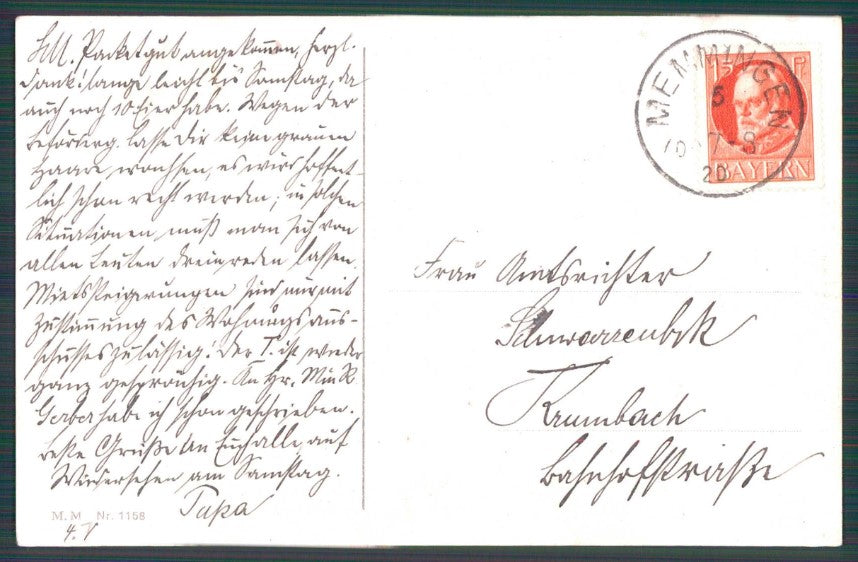 LM. Packet gut angekommen, herzl.
Dank! lange leicht bis Samstag, da
auch noch 10 Eier habe. Wegen der
Beförderg. lasse Dir keine grauen
Haare wachsen, es wird hoffent-
lich schon recht werden; in solchen
Situationen muß man sich von
allen Leuten dreinreden lassen.
Mietssteigerungen sind nur mit
Zustimmung des Wohnungsaus-
schusses zulässig! Der T. ist wieder
ganz gesprächig. An Hr. Min R
Gerber habe ich schon geschrieben.
Beste Grüße an Euch alle, auf
Wiedersehen am Samstag.
Papa
M. M Nr. 1158
4. V
MEMMINGEN
5
7-8
20
15 Pf
BAYERN
Frau Amtsrichter
Schwarrenbek
Krumbach
Bahnhofstraße